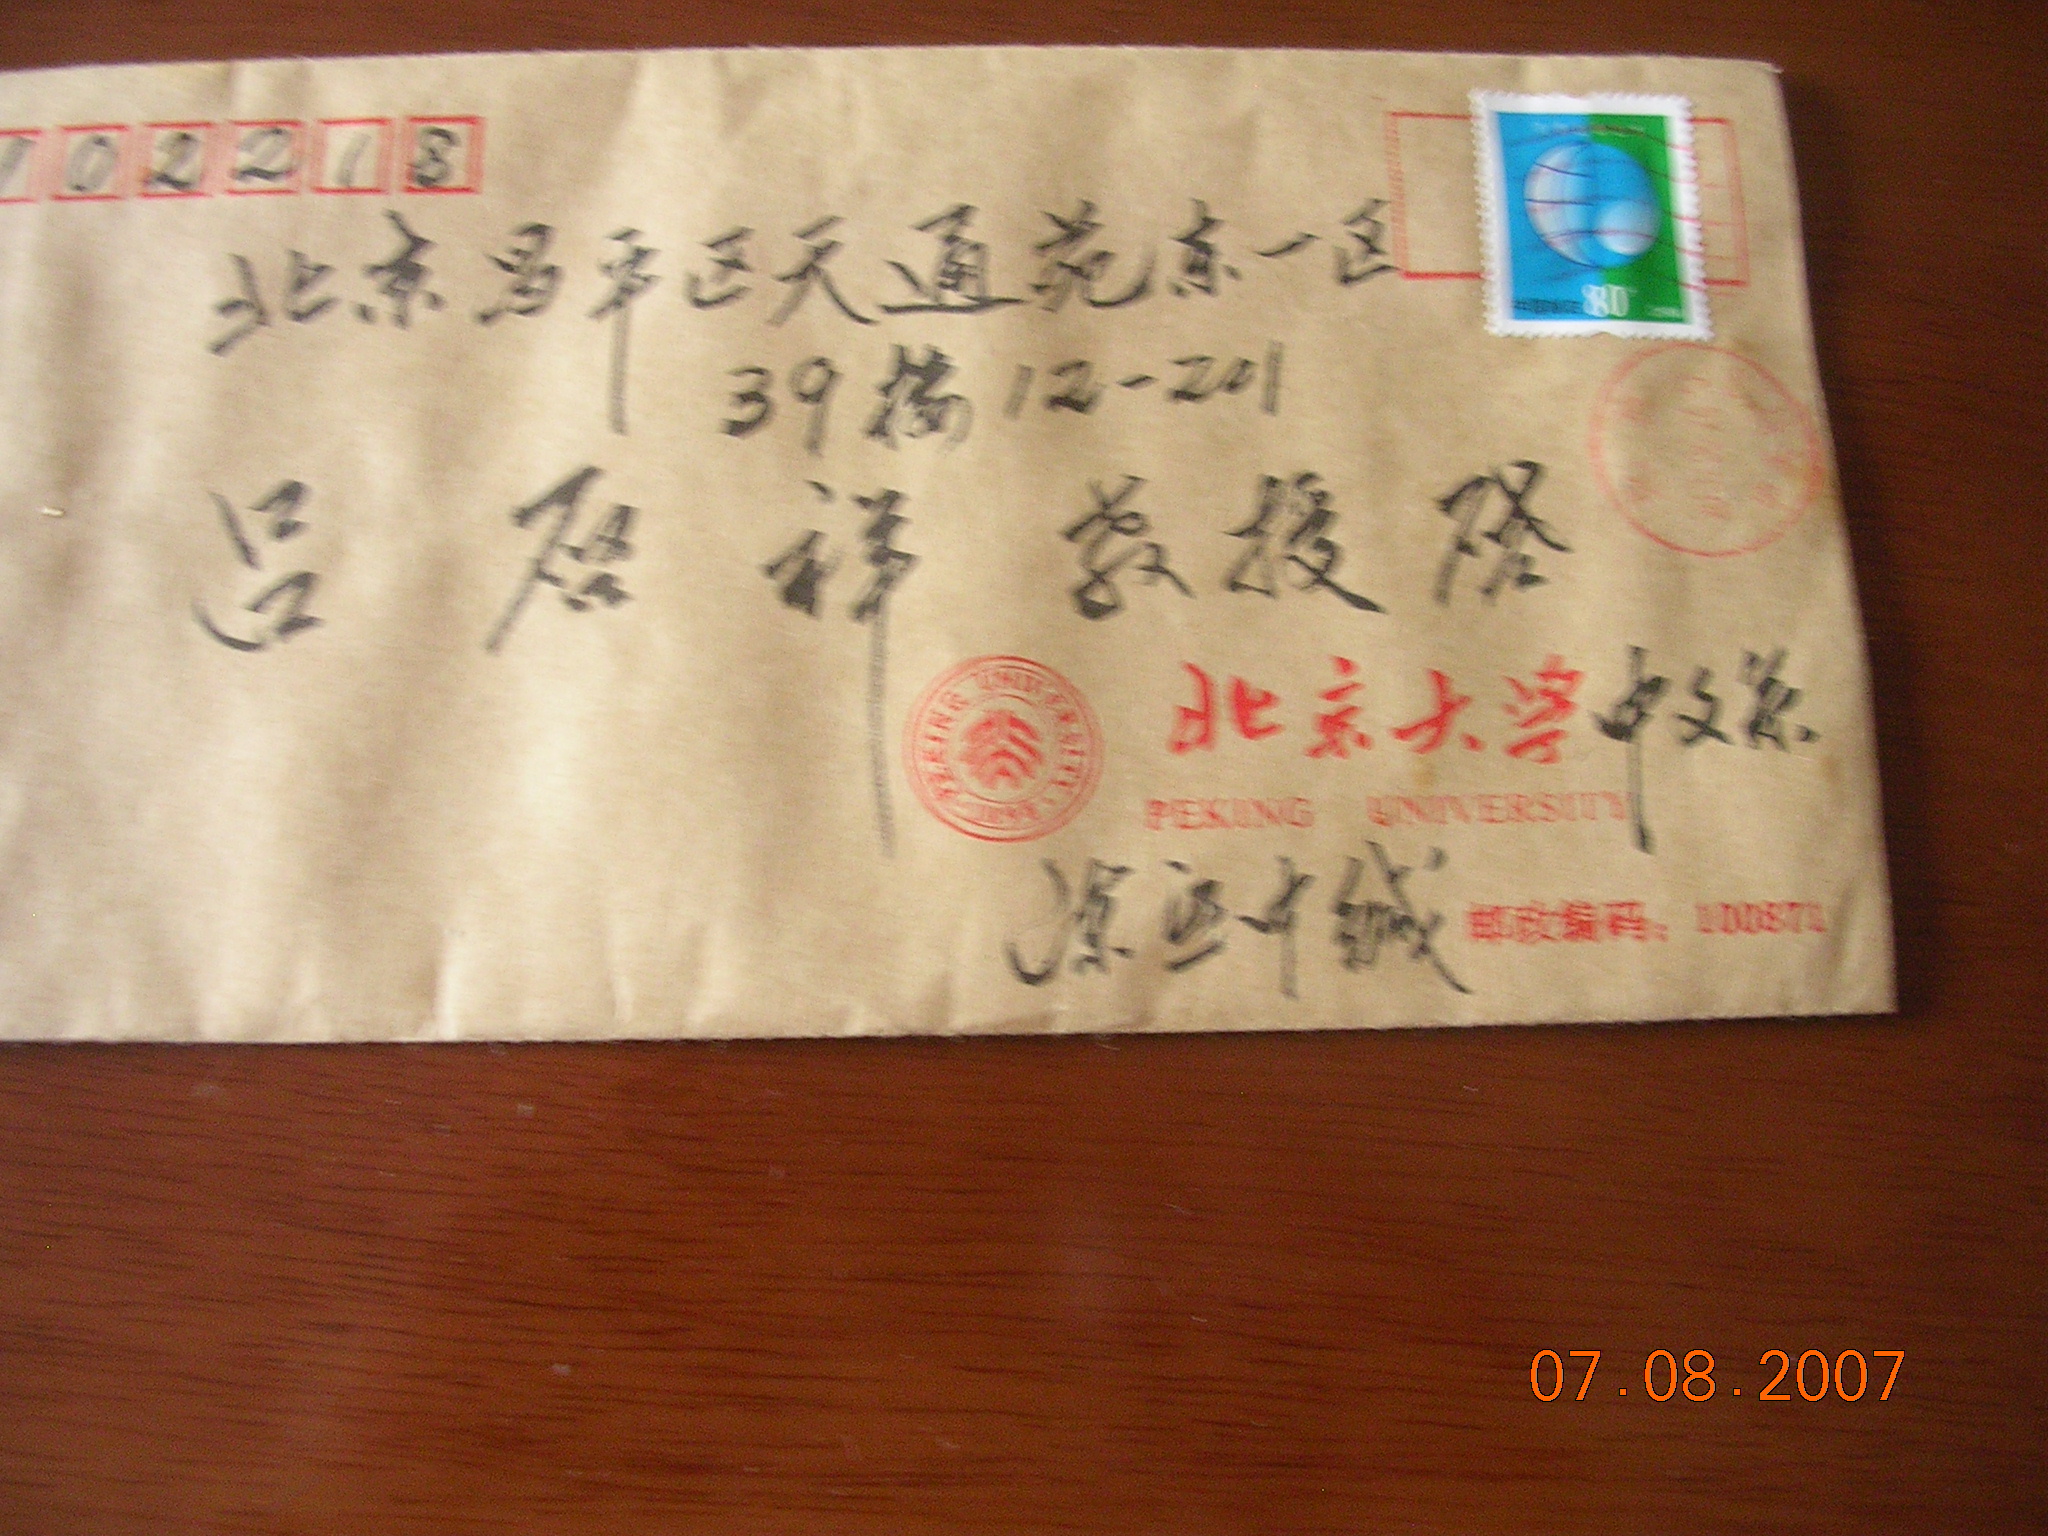 102218
北京昌平区天通苑东一区
39楼12-201
吕启祥 教授 启
北京大学中文系
PEKING UNIVERSITY
缄
邮政编码：100871
80
PEKING UNIVERSITY
1898
07.08.2007